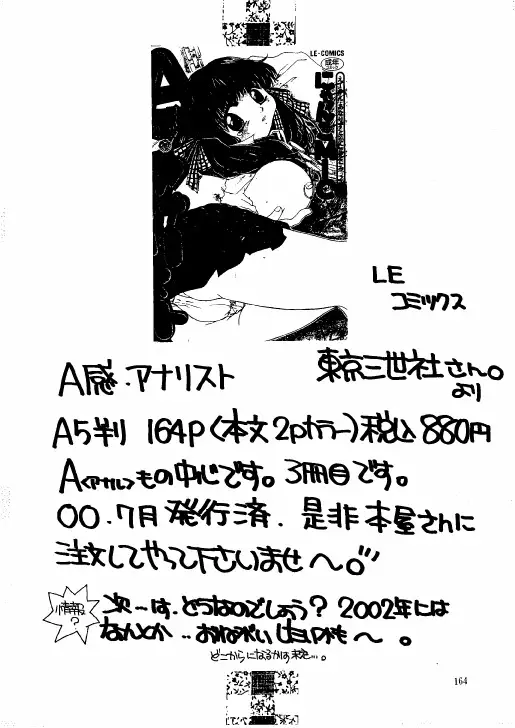 LE-COMICS
成年
LE
コミックス
東京三世社さん。
より
A感・アナリスト
A5判 164P〈本文2pカラー〉税込880円
A〈アナル〉もの中心です。3冊目です。
00.7月 発行済. 是非本屋さんに
注文してやって下さいませ〜。
情報?
次〜は、どうなのでしょう? 2002年には
なんとか
どこからになるかは
164